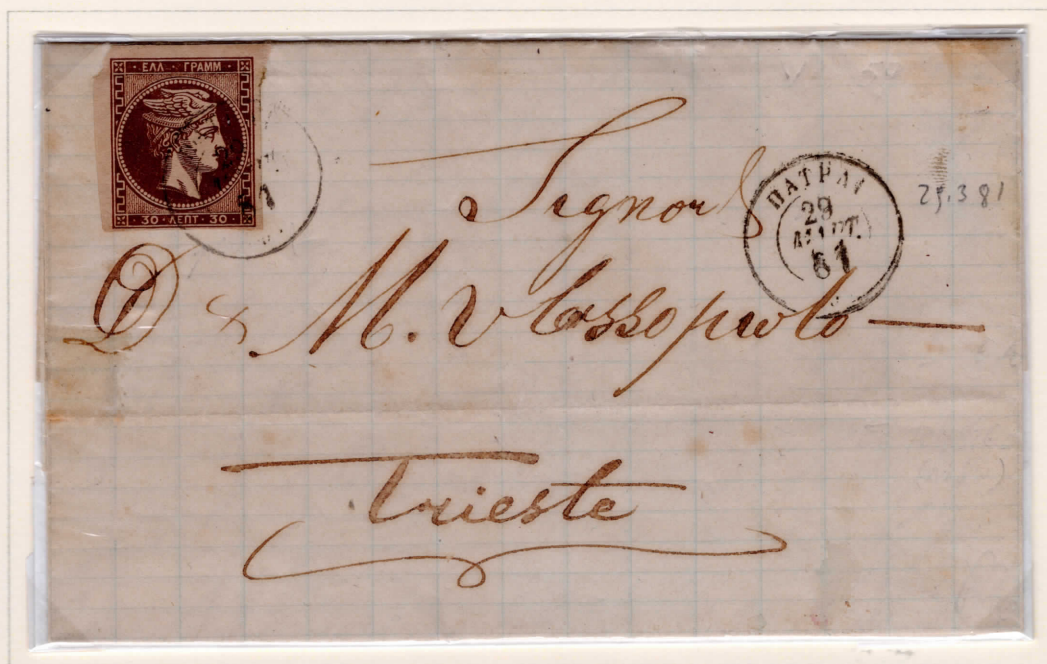 ΕΛΛ · ΓΡΑΜΜ
30 · ΛΕΠΤ · 30
Signori
ΠΑΤΡΑΙ
29
ΜΑΡΤ.
81
29.3 81
D & M. Vlassopulo
Trieste